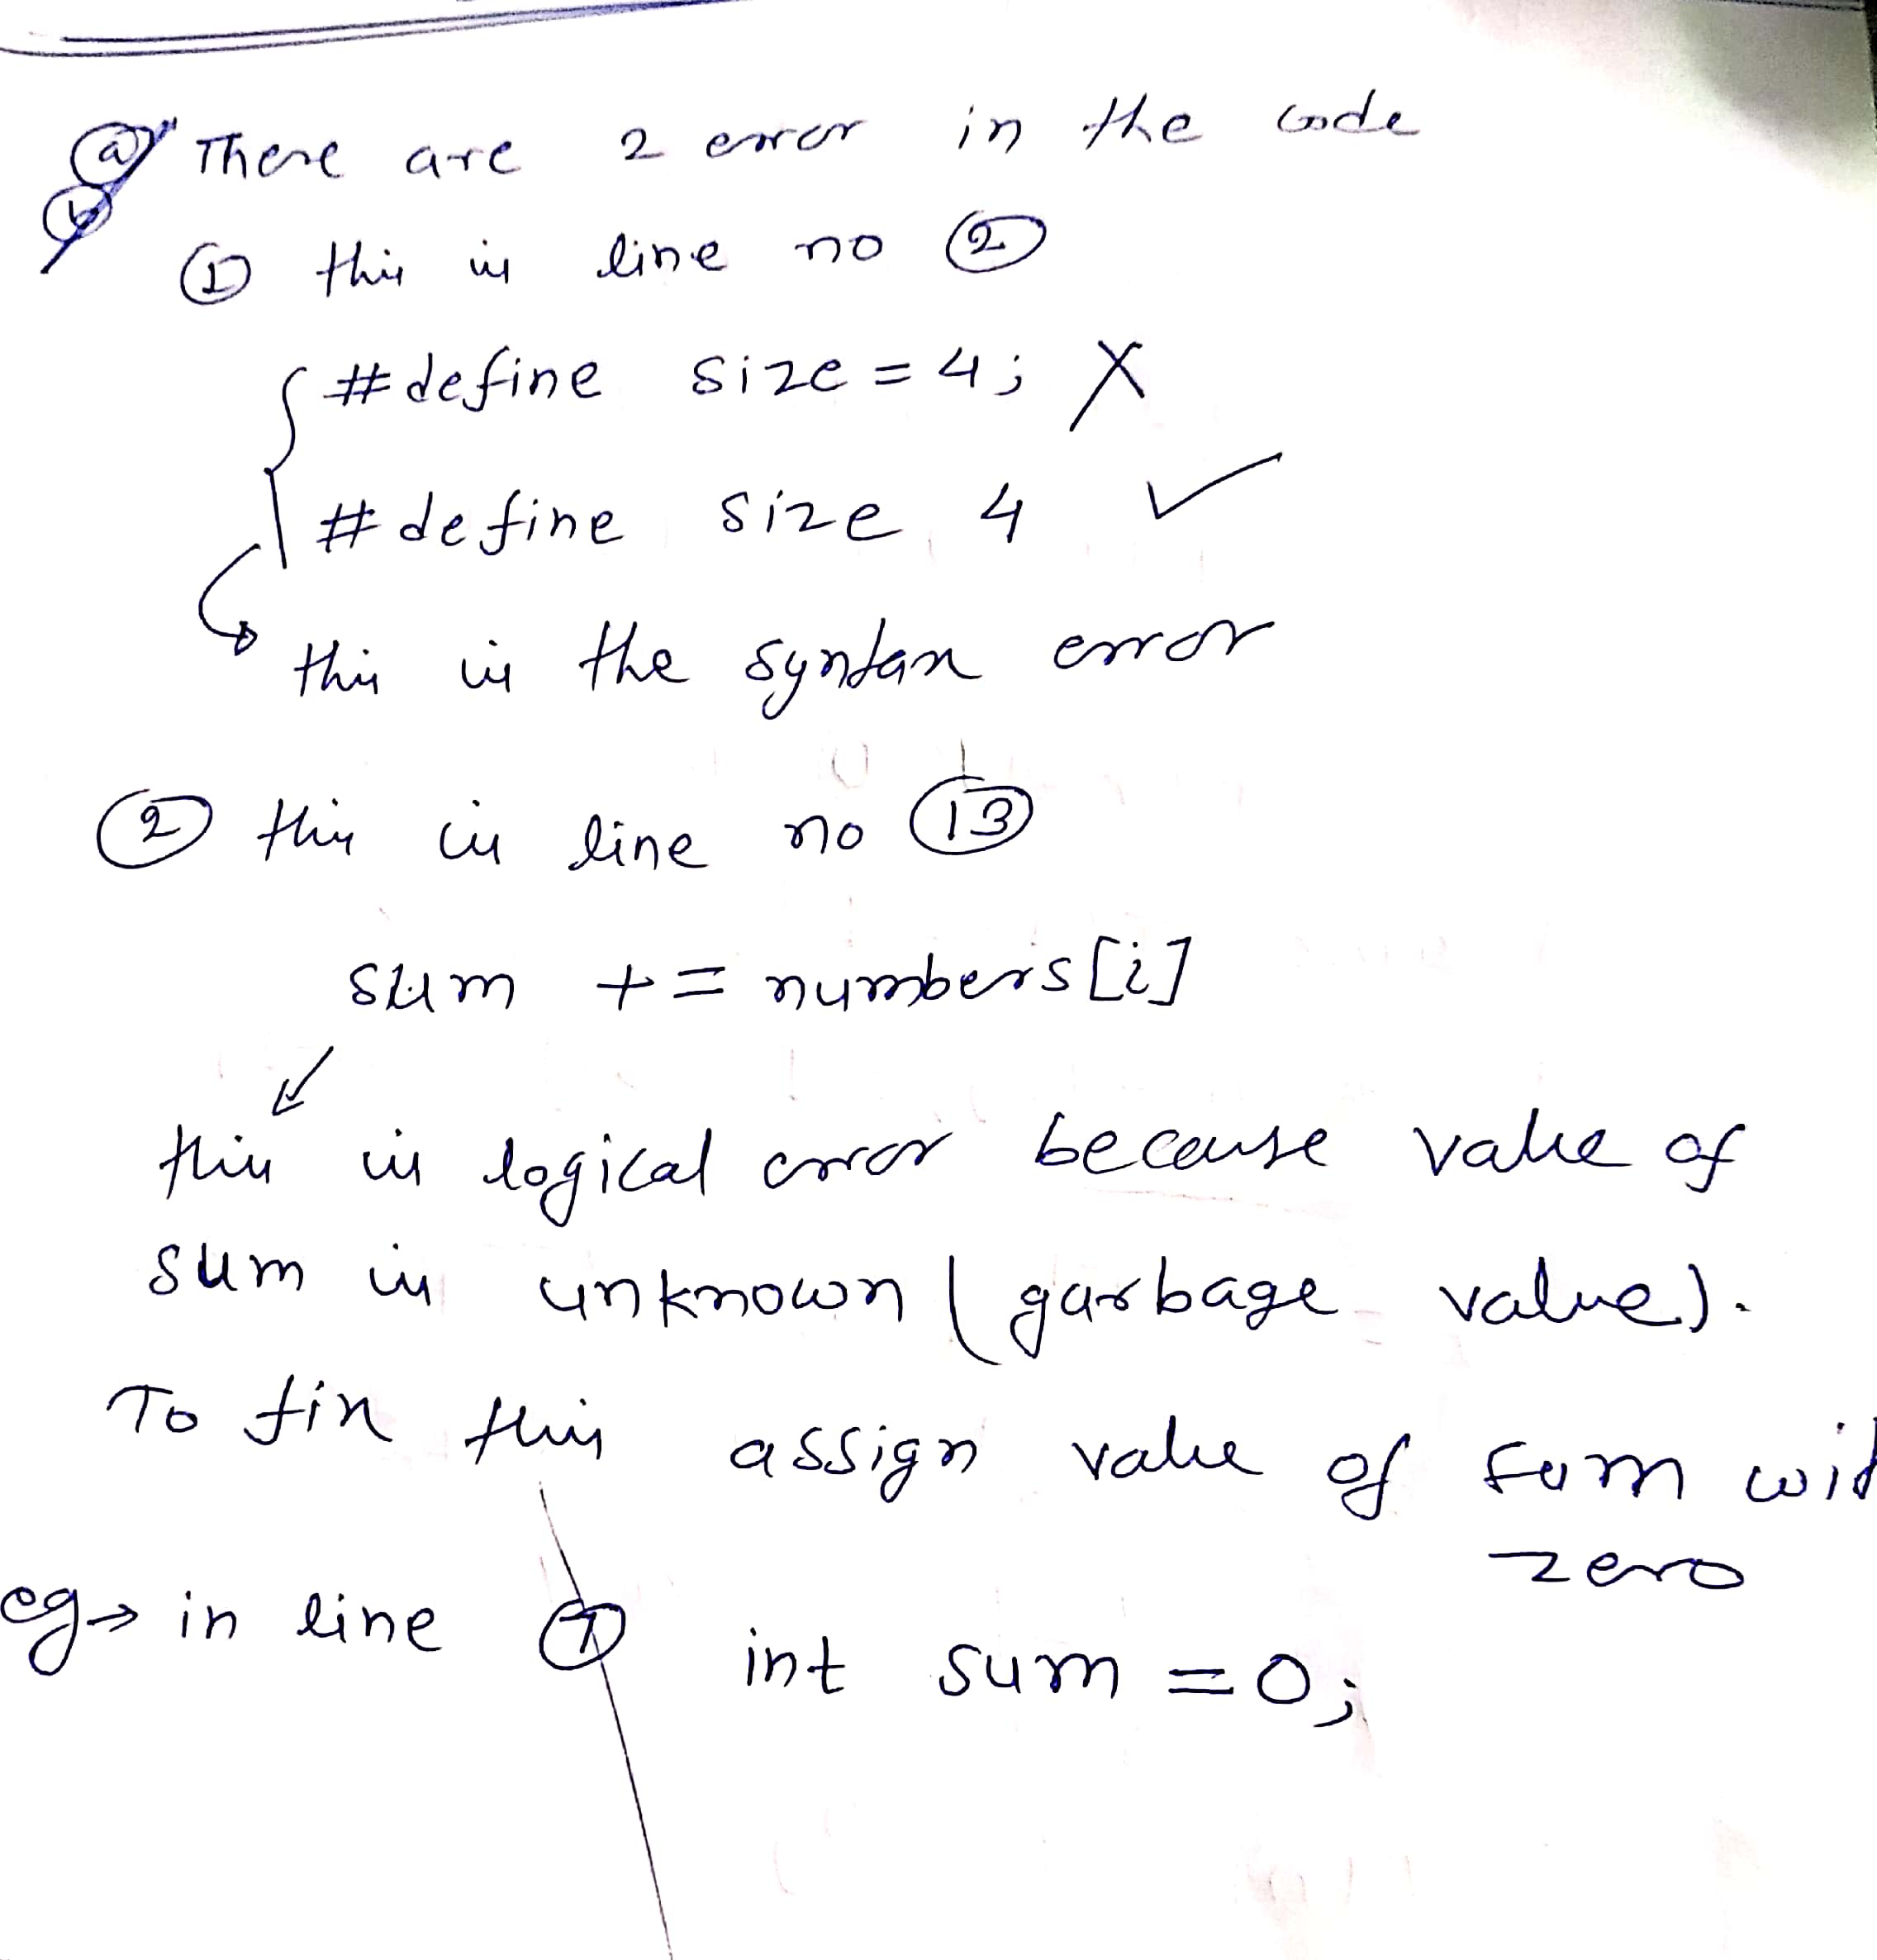 (a) There are 2 error in the code
(b)
(1) this is line no (2)
#define size = 4; X
#define size 4 ✓
this is the syntax error
(2) this is line no (13)
sum += numbers[i]
this is logical error because value of
sum is unknown (garbage value).
To fix this assign value of sum wit
zero
eg → in line (7) int sum = 0;